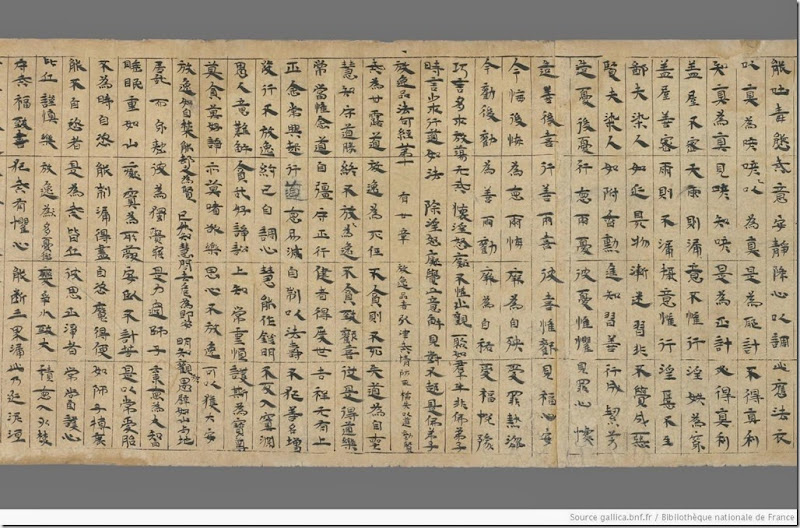 能吐毒態 戒意安静 降心以調 此應法衣
以真為偽 以偽為真 是為耶計 不得真利
知真為真 見偽知偽 是為正計 必得真利
盖屋不密 天雨則漏 意不惟行 淫泆為穿
盖屋善密 雨則不漏 攝意惟行 淫不生
鄙夫染人 如近臭物 漸迷習非 不覺成惡
賢夫染人 如附香熏 進知習善 行成潔芳
造憂後憂 行惡兩憂 彼憂惟懼 見罪心懅
造喜後喜 行善兩喜 彼喜惟歡 見福心安
今悔後悔 為惡兩悔 厥為自殃 受罪熱惱
今歡後歡 為善兩歡 厥為自祐 受福悅豫
巧言多求 放蕩无戒 懷淫怒癡 不惟止觀 聚如羣牛 非佛弟子
時言少求 行道如法 除淫怒癡 覺正意解 見對不起 是佛弟子
放逸品法句經第十 有廿章 放逸品者
戒為甘露道 放逸為死徑 不貪則不死 失道為自喪
慧知守道勝 終不放為逸 不貪致歡喜 從是得道樂
常當惟念道 自彊守正行 健者得度世 吉祥无有上
正念常興起 行道惡易滅 自制以法壽 不犯善名增
發行不放逸 約己自調心 慧能作錠明 不反入冥淵
愚人意難解 貪亂好諍訟 上知常重慎 護斯為寶尊
莫貪莫好諍 亦莫嗜欲樂 思心不放逸 可以獲大安
放逸如自禁 能却之為賢 已昇知慧閣 去危為即安 明知觀愚 譬如山與地
居亂而身正 彼為獨覺悟 是力過師子 棄惡為大智
睡眠重如山 癡冥為所蔽 安臥不計苦 是以常受胎
不為時自恣 能制漏得盡 自恣魔得便 如師子搏鹿
能不自恣者 是為戒比丘 彼思正淨者 常當自護心
比丘謹慎樂 放逸多憂愆 變爭小致大 積惡入火焚
守戒福致喜 犯戒有懼心 能斷三界漏 此乃近泥洹
Source gallica.bnf.fr / Bibliothèque nationale de France